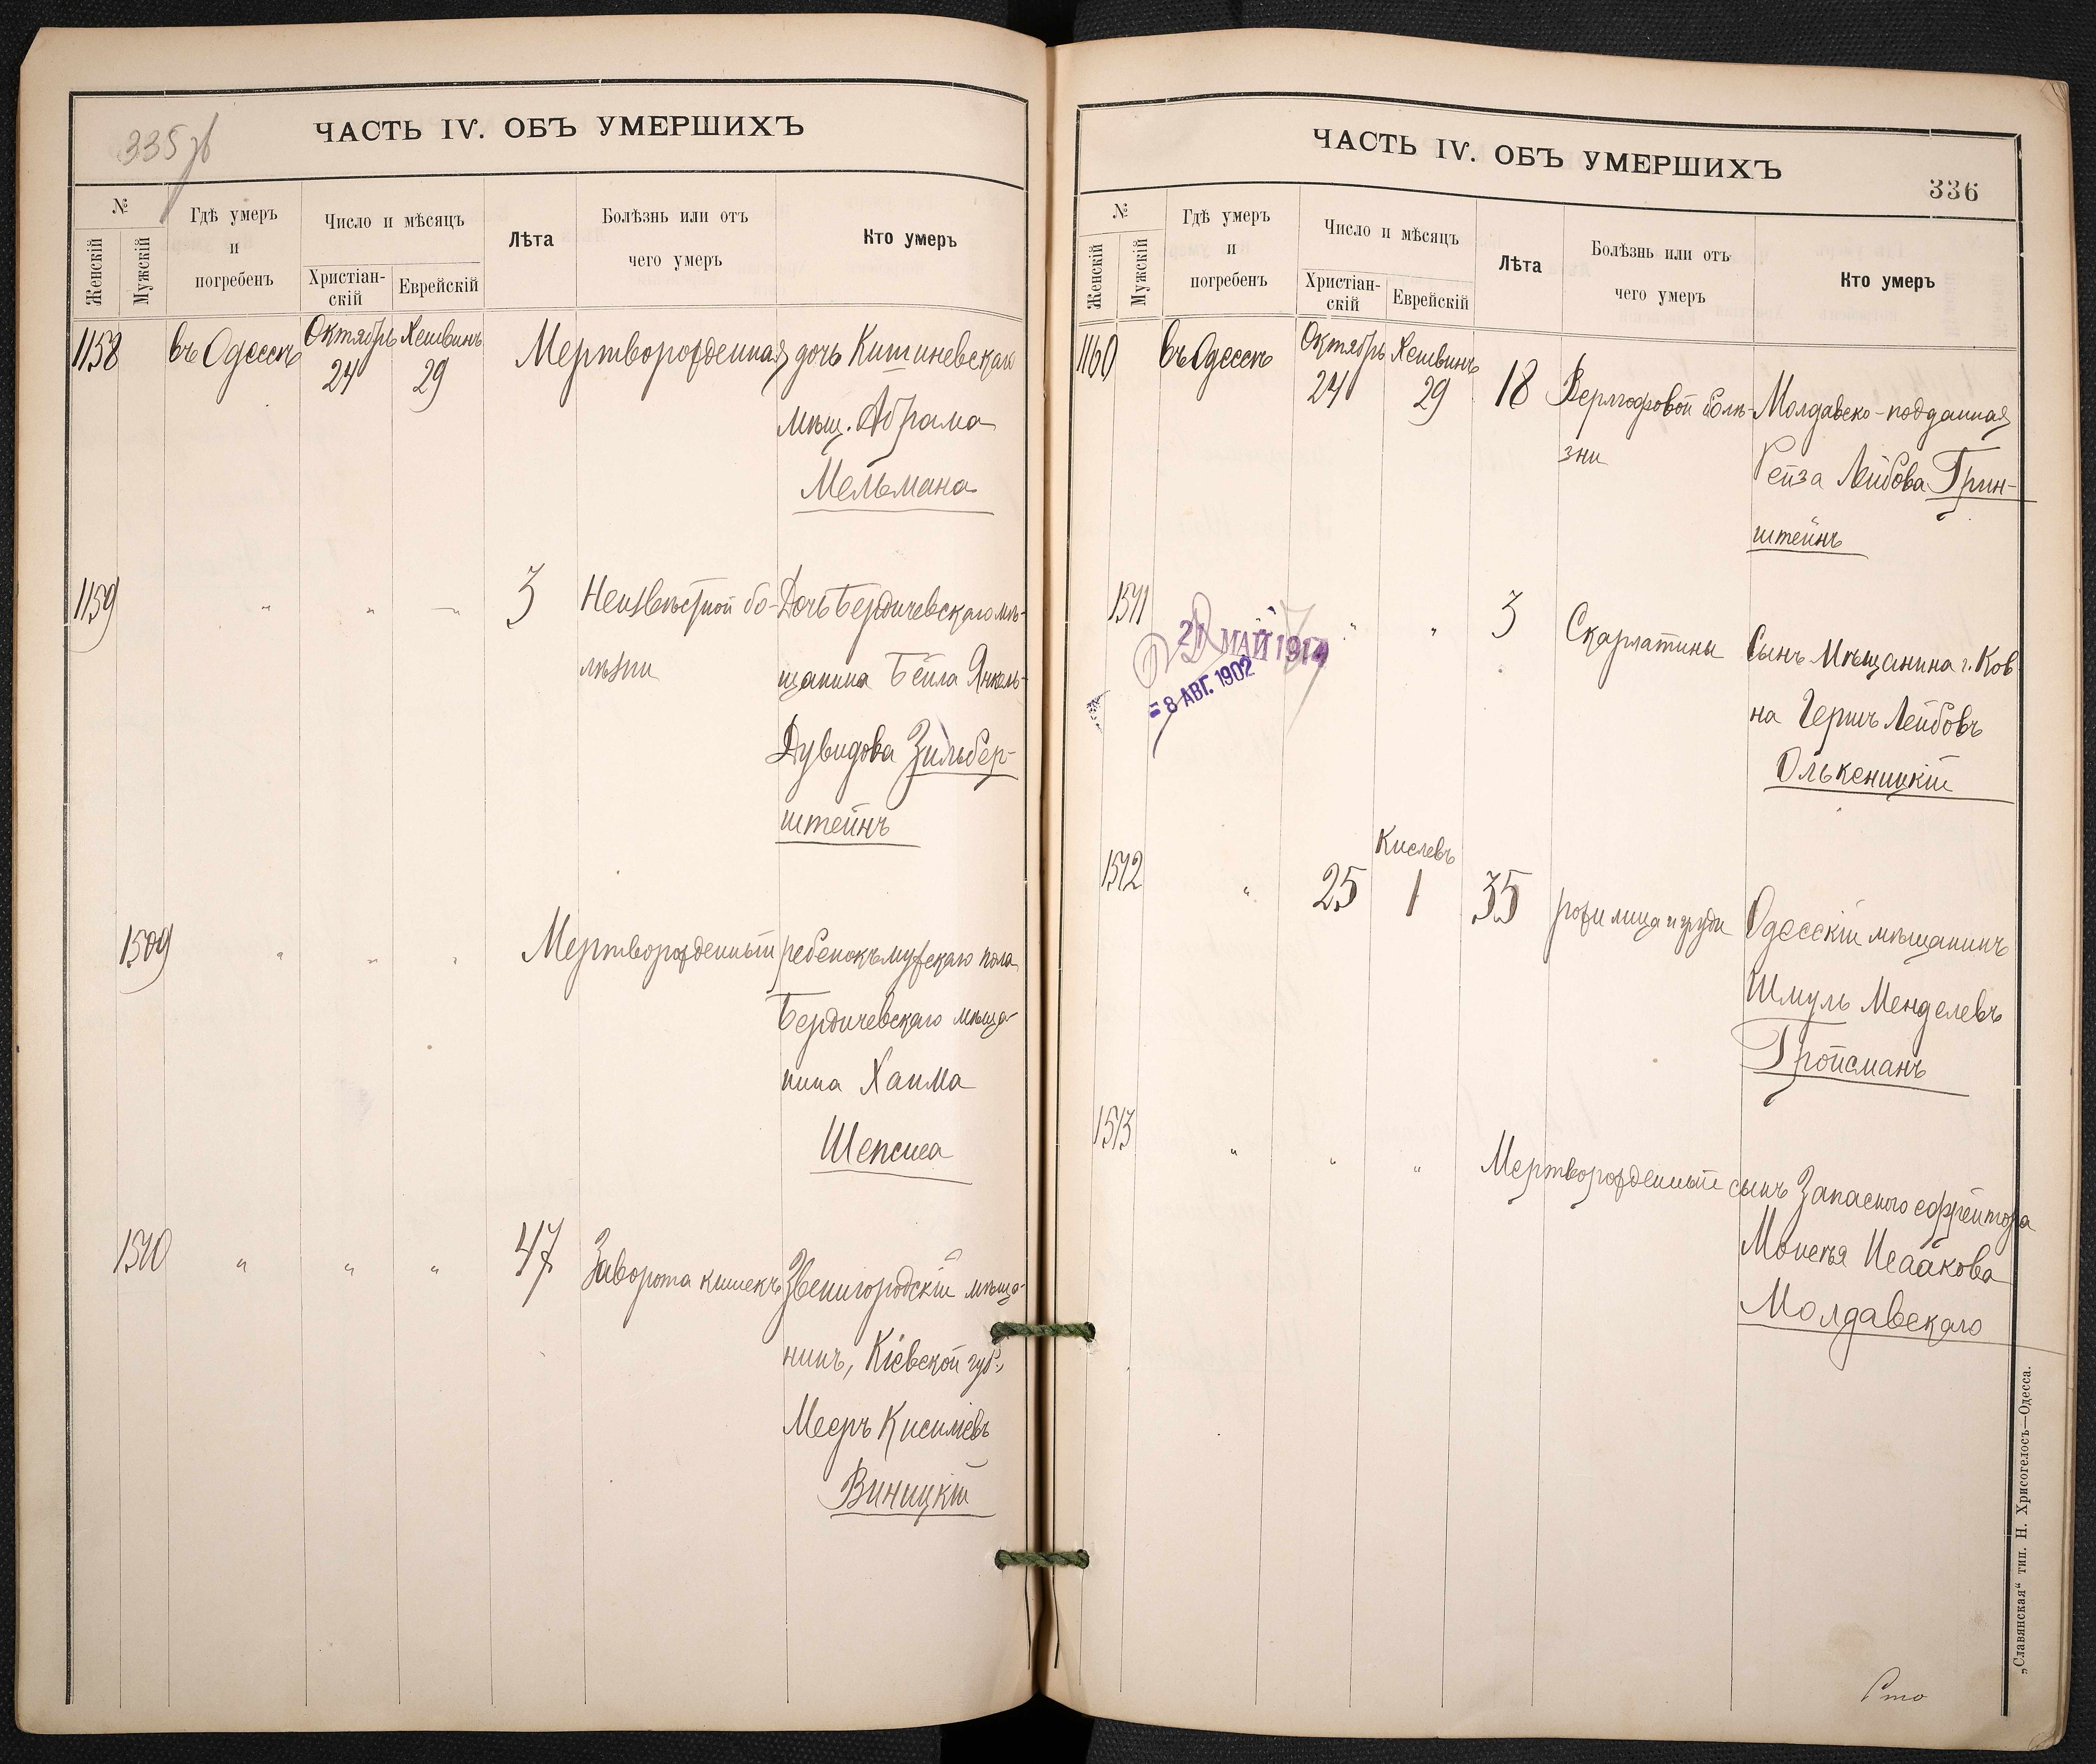 335 об
ЧАСТЬ IV. ОБЪ УМЕРШИХЪ
№
Женскій
Мужскій
Гдѣ умеръ
и
погребенъ
Число и мѣсяцъ
Христіан-
скій
Еврейскій
Лѣта
Болѣзнь или отъ
чего умеръ
Кто умеръ
1158 въ Одессѣ Октябрь 24 Хешвинъ 29 Мертворожденная дочь Кишиневскаго
мѣщ. Абрама
Мельмана
1159 " " " 3 Неизвѣстной бо- Дочь Бердичевскаго мѣ-
лѣзни щанина Бейла Янкель-
Дувидова Зильбер-
штейнъ
1509 " " " Мертворожденный ребенокъ мужскаго пола
Бердичевскаго мѣща-
нина Хаима
Шепсиса
1510 " " " 47 Заворота кишекъ Звенигородскій мѣща-
нинъ, Кіевской губ.,
Мееръ Кисилевъ
Виницкій
ЧАСТЬ IV. ОБЪ УМЕРШИХЪ
336
№
Женскій
Мужскій
Гдѣ умеръ
и
погребенъ
Число и мѣсяцъ
Христіан-
скій
Еврейскій
Лѣта
Болѣзнь или отъ
чего умеръ
Кто умеръ
1160 въ Одессѣ Октябрь 24 Хешвинъ 29 18 Верлгофовой болѣ- Молдавско-подданная
зни Рейза Лейбова Грин-
штейнъ
1511 " " 3 Скарлатины Сынъ Мѣщанина г. Ков
на Гершъ Лейбовъ
Олькеницкій
21 МАЙ 1914
8 АВГ. 1902
1512 " 25 Кислевъ 1 35 рожи лица и груди Одесскій мѣщанинъ
Шмуль Менделевъ
Гройсманъ
1513 " " " Мертворожденный сынъ Запаснаго ефрейтора
Монсъя Исаакова
Молдавскаго
„Славянская“ тип. Н. Хрисогелосъ—Одесса.